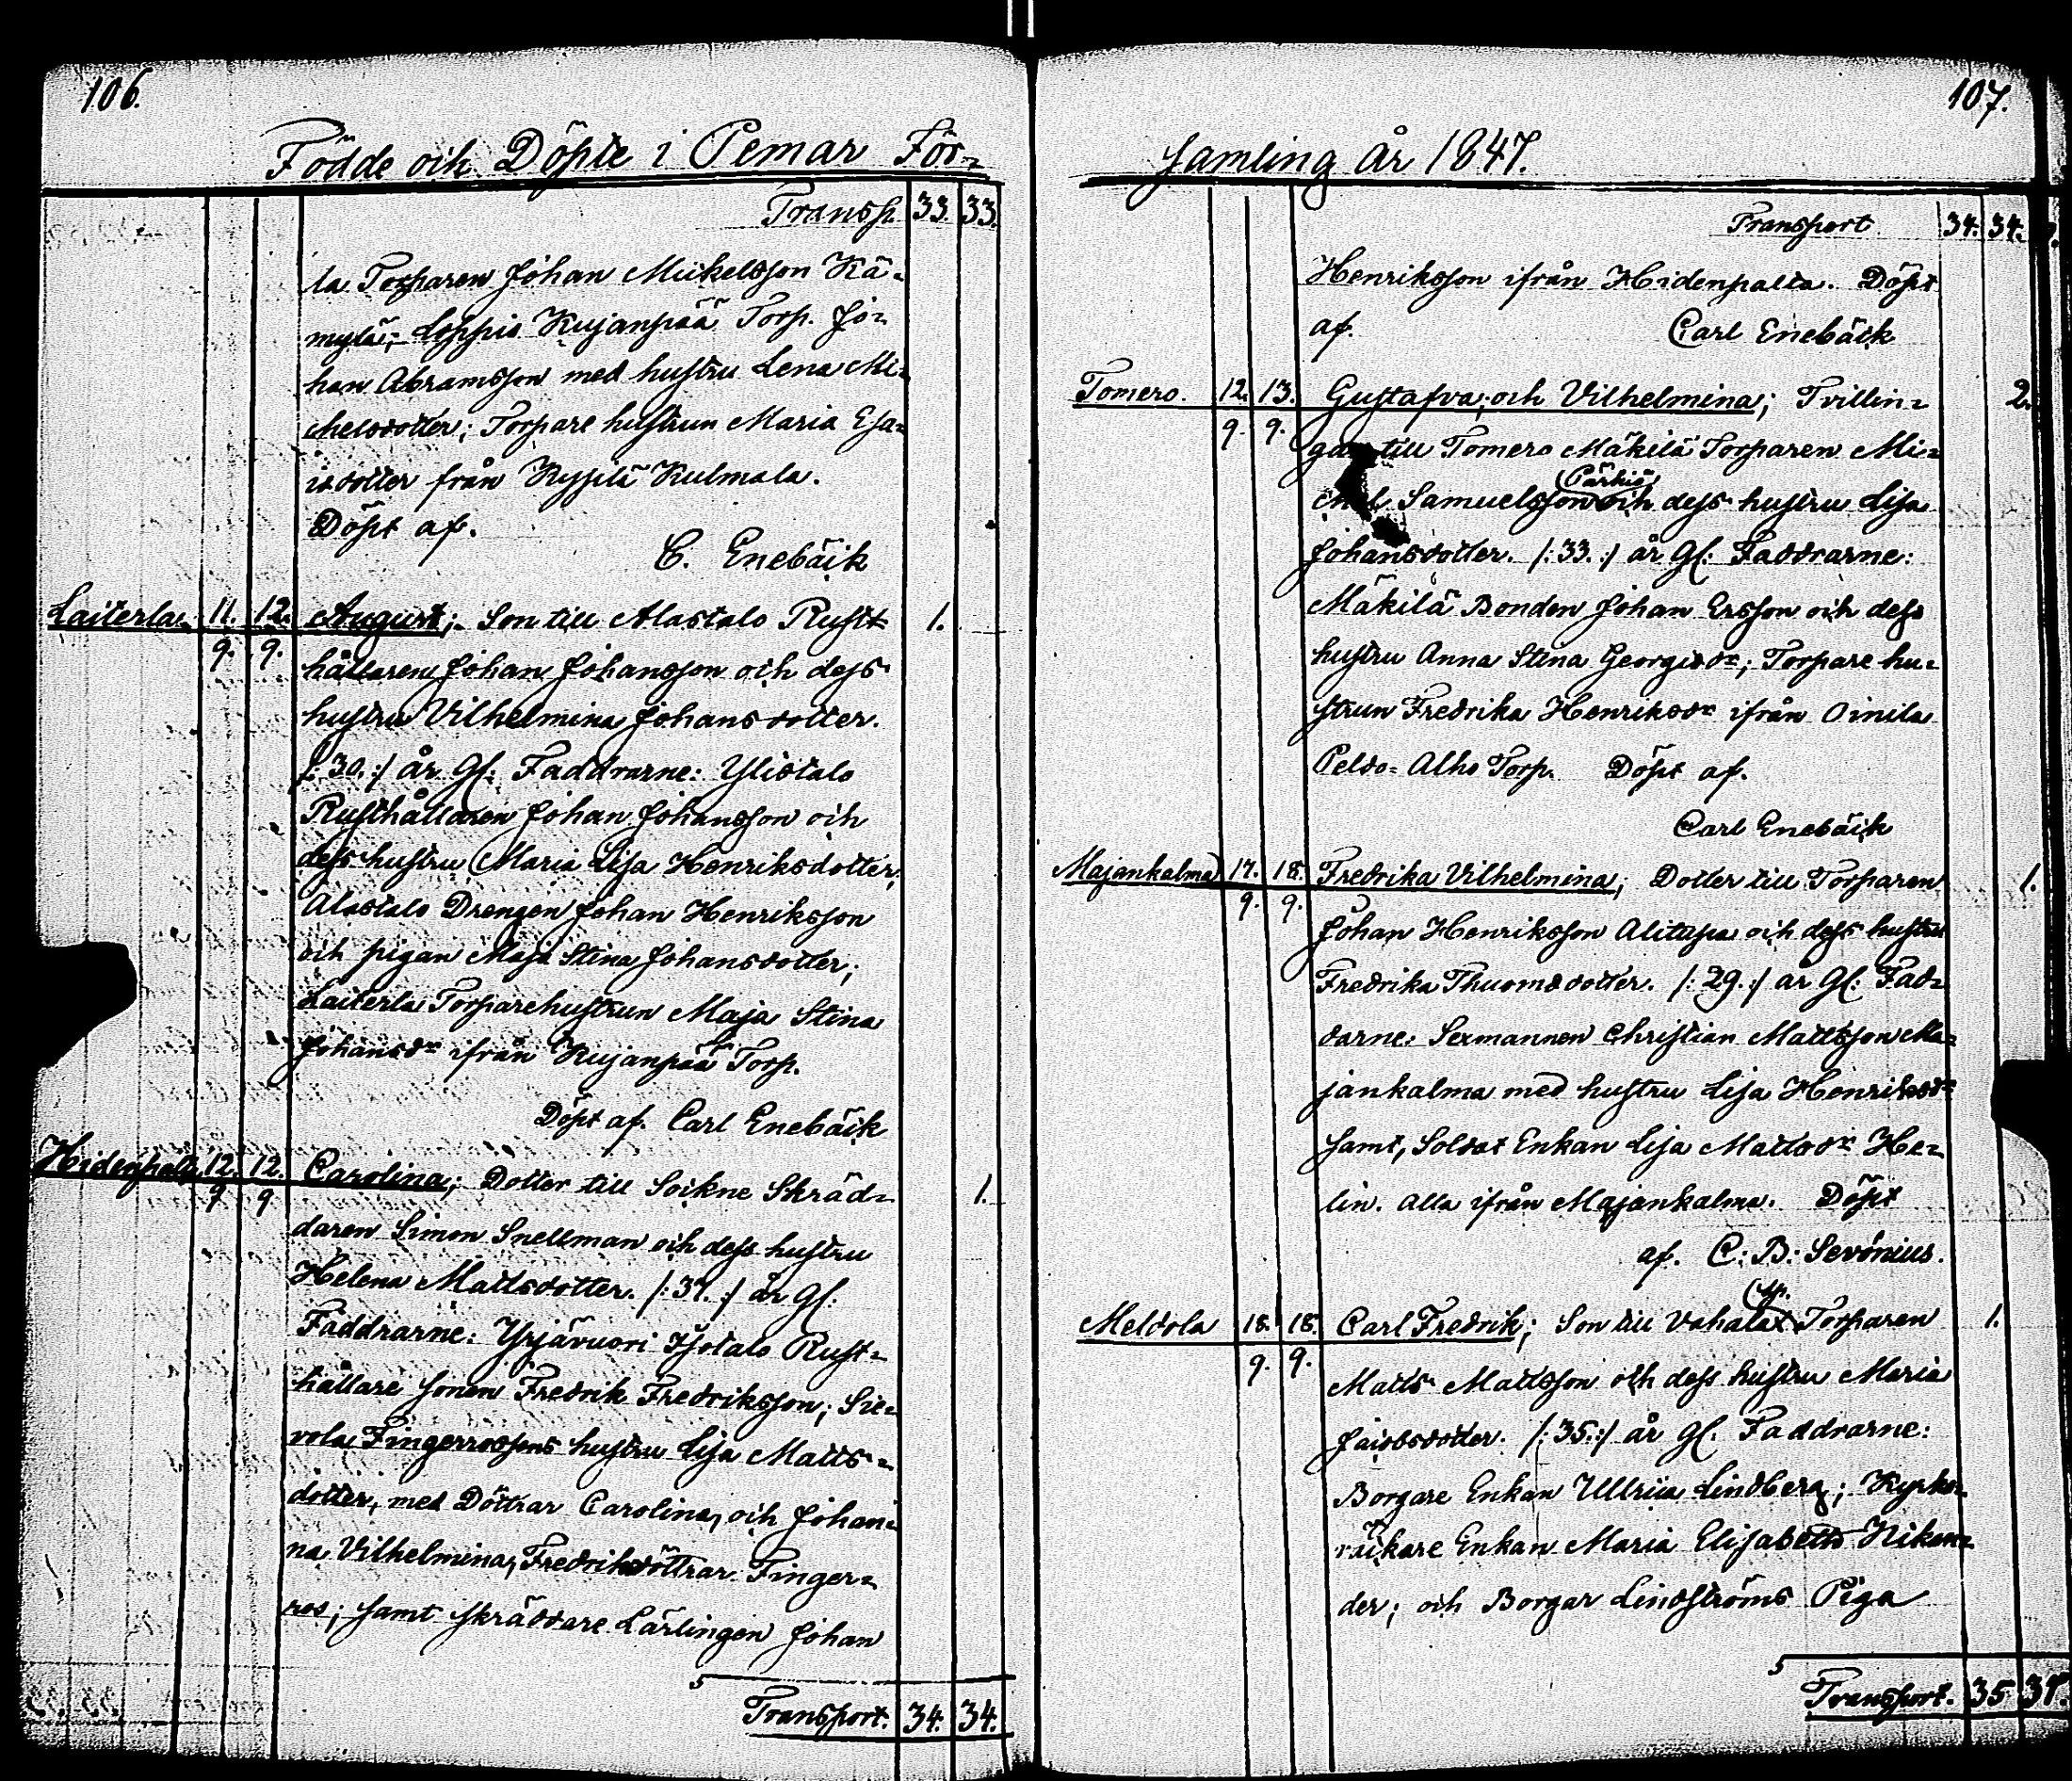 106.
Födde och Döpte i Pemar För-
Transp. 33. 33.
la Torparen Johan Mickelsson Kä-
mylä; Loppis Kujanpää Torp. Jo-
han Abramsson med hustru Lena Mi-
chelsdotter; Torpare hustrun Maria Esa-
isdotter från Kyysilä Kulmala.
Döpt af.
C. Enebäck
Laiterla 11. 12. August; Son till Alastalo Rust 1.
9. 9. hållaren Johan Johansson och dess
hustru Vilhelmina Johansdotter.
/:30.:/ år gl: Faddrarne: Ylistalo
Rusthållaren Johan Johansson och
dess hustru Maria Lisa Henriksdotter,
Alastalo Drengen Johan Henriksson
och pigan Maja Stina Johansdotter;
Laiterla Torparehustrun Maja Stina
Johansdr ifrån Kujanpää Torp.
Döpt af. Carl Enebäck
Hidenpalta 12. 12. Carolina; Dotter till Sockne Skräd- 1.
9 9 daren Simon Snellman och dess hustru
Helena Mattsdotter. /:37.:/ år gl:
Faddrarne: Yrjävuori Isotalo Rust-
hållare sonen Fredrik Fredriksson; Sie-
vola Fingerroosens hustru Lisa Matts-
dotter, med Döttrar Carolina, och Johan-
na Vilhelmina, Fredriksdöttrar Finger-
ros; samt skräddare Lärlingen Johan
Transport. 34. 34.
107.
samling År 1847.
Transport 34. 34.
Henriksson ifrån Hidenpalta. Döpt
af. Carl Enebäck
Tomero. 12. 13. Gustafva; och Vilhelmina; Tvillin- 2.
9. 9. gar till Tomero Mäkilä Torparen Mi-
Pärkiö
chel Samuelsson och dess hustru Lisa
Johansdotter. /:33.:/ år Gl: Faddrarne:
Mäkilä Bonden Johan Ersson och dess
hustru Anna Stina Georgisdr; Torpare hu-
strun Fredrika Henriksdr ifrån Oinila
Peldo-Alho Torp. Döpt af.
Carl Enebäck
Majankalma 17. 18. Fredrika Vilhelmina; Dotter till Torparen 1.
9. 9. Johan Henriksson Alitupa och dess hustru
Fredrika Thuomsdotter. /:29.:/ år Gl: Fad-
darne: Sexmannen Christian Mattsson Ma-
jankalma med hustru Lisa Henriksdr
samt, Soldat Enkan Lisa Mattsdr He-
lin. Alla ifrån Majankalma. Döpt
af. C: B: Sevónius.
Meldola 18. 18. Carl Fredrik; Son till Vahala Torparen 1.
9. 9. Matts Mattsson och dess hustru Maria
Jacobsdotter. /:35.:/ år gl. Faddrarne:
Borgare Enkan Ullrica Lindberg; Kyrko-
räckare Enkan Maria Elisabeth Niken-
der; och Borgar Lindströms Piga
Transport. 35 37.